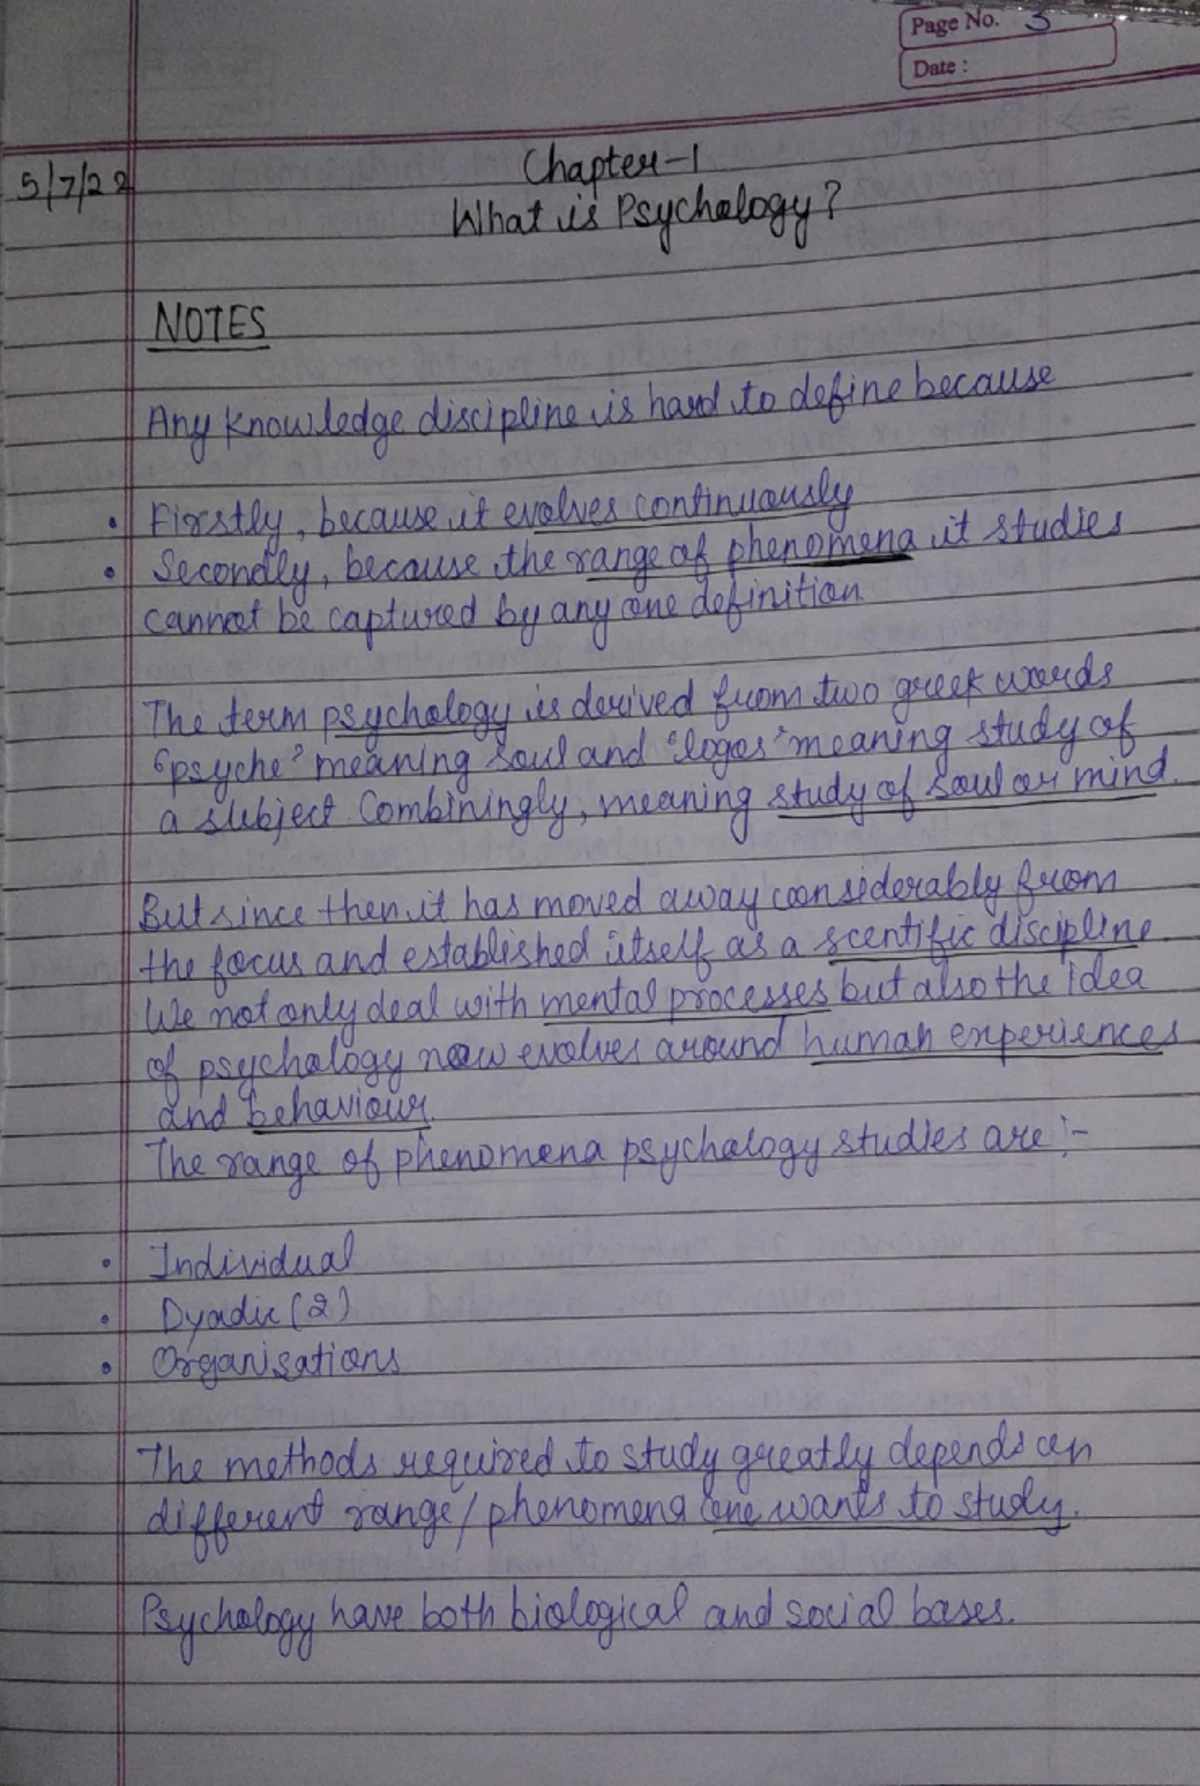 Page No. 3
Date :
5/7/22
Chapter-1
What is Psychology?
NOTES
Any knowledge discipline is hard to define because
• Firstly, because it evolves continuously
• Secondly, because the range of phenomena it studies
cannot be captured by any one definition.
The term psychology is derived from two greek words
‘psyche’ meaning soul and ‘logos’ meaning study of
a subject. Combiningly, meaning study of soul or mind.
But since then it has moved away considerably from
the focus and established itself as a scentific discipline.
We not only deal with mental processes but also the idea
of psychology now evolves around human experiences
and behaviour.
The range of phenomena psychology studies are :-
• Individual
• Dyadic (2)
• Organisations
The methods required to study greatly depends on
different range/phenomena one wants to study.
Psychology have both biological and social bases.